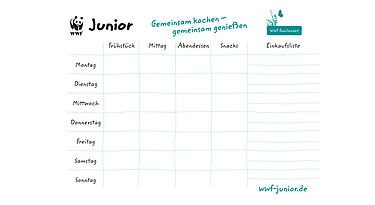 WWF
Junior
Gemeinsam kochen –
gemeinsam genießen
Frühstück Mittag Abendessen Snacks Einkaufsliste
Montag
Dienstag
Mittwoch
Donnerstag
Freitag
Samstag
Sonntag
wwf-junior.de